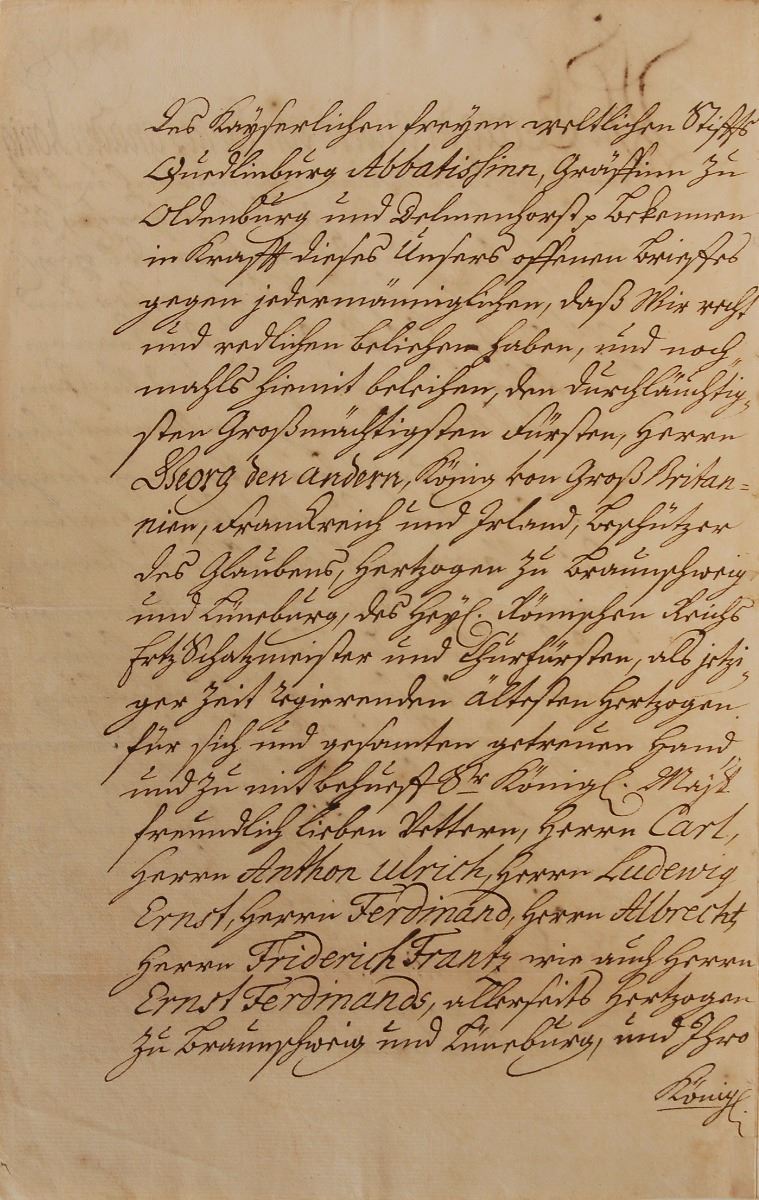 des Kaÿserlichen freÿen weltlichen Stiffts
Quedlinburg Abbatissinn, Gräffinn zu
Oldenburg und Delmenhorst p bekennen
in Krafft dieses Unsers offenen Brieffes
gegen jedermänniglichen, daß Wir recht
und redlichen beliehen haben, und noch„
mahls hiemit beleihen, den Durchläuchtig„
sten Großmächtigsten Fürsten, Herrn
Georg den andern, König von Groß Britan=
nien, Franckreich und Irland, Beschützer
des Glaubens, Hertzogen zu Braunschweig
und Lüneburg, des Heÿl. Römischen Reichs
Ertz Schatzmeister und Churfürsten, als jetzi„
ger Zeit regierenden ältesten Hertzogen
für sich und gesamten getreuen Hand
und zu mit behueff Sr Königl. Majt
freundlich lieben Vettern, Herrn Carl,
Herrn Anthon Ulrich, Herrn Ludewig
Ernst, Herrn Ferdinand, Herrn Albrecht,
Herrn Friderich Frantz wie auch Herrn
Ernst Ferdinands, allerseits Hertzogen
zu Braunschweig und Lüneburg, und Ihro
Königl.